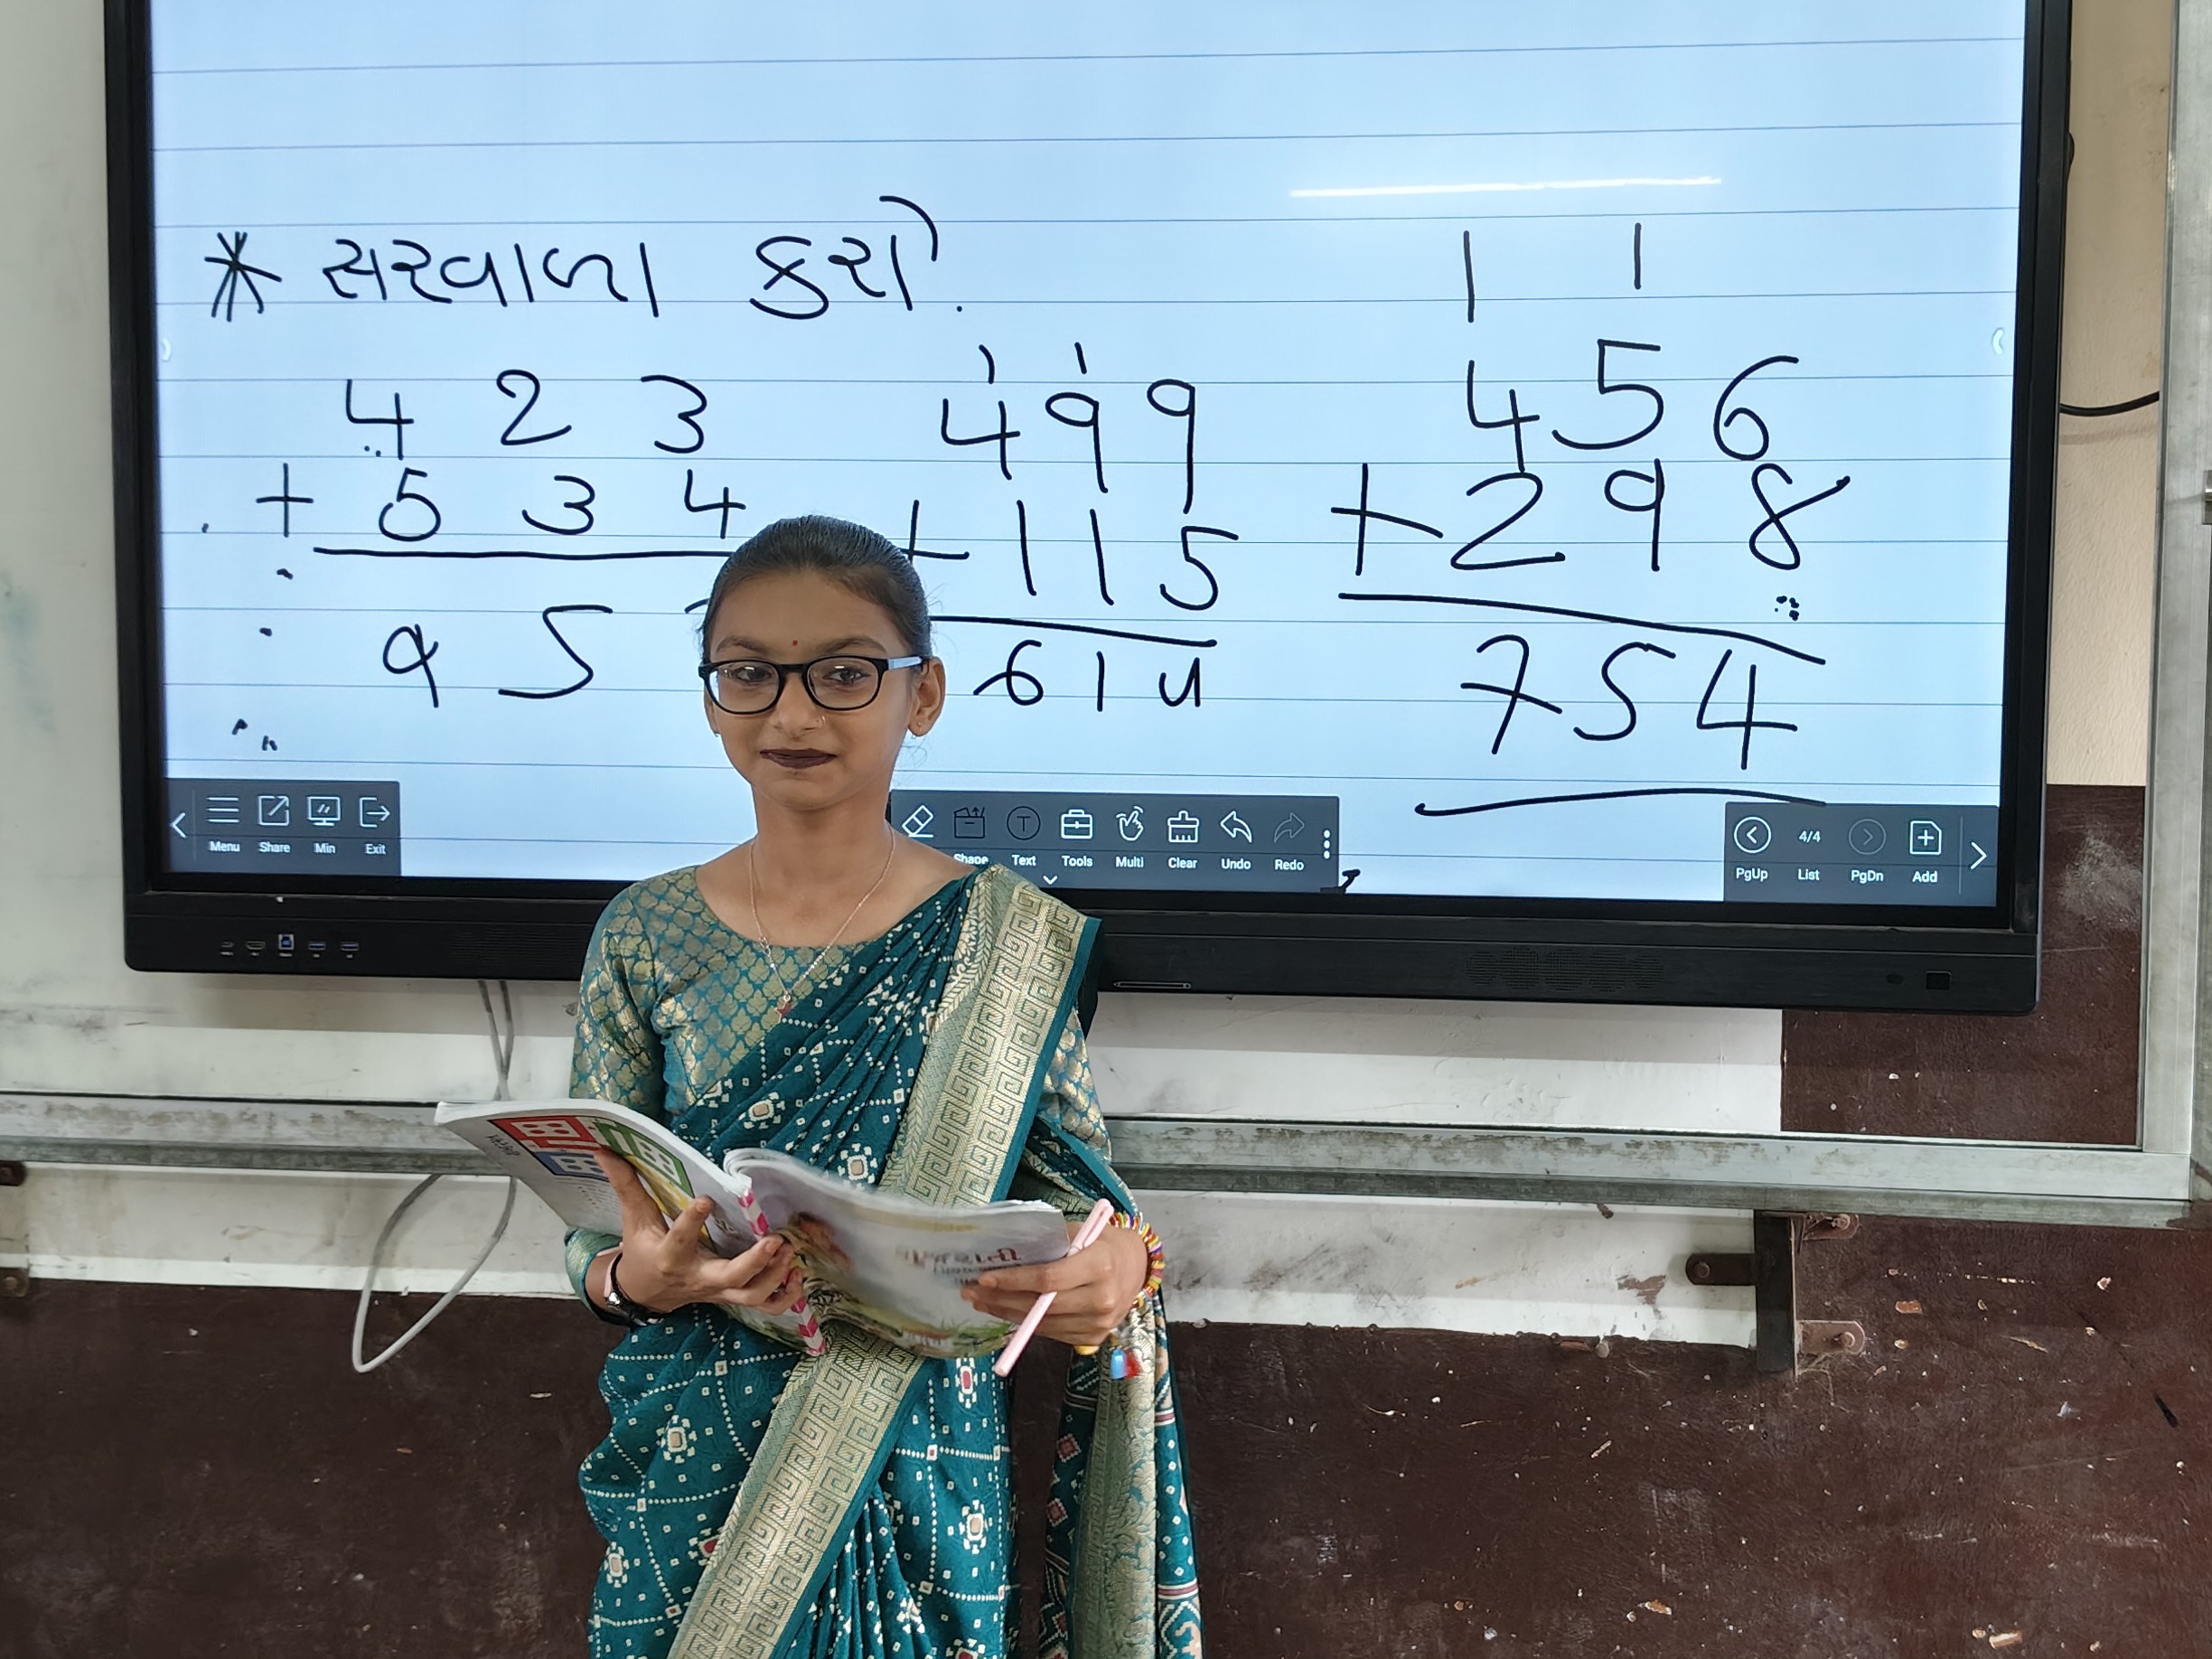 * સરવાળા કરો.
1 1
1 1
4 2 3
4 9 9
4 5 6
+ 5 3 4
+ 1 1 5
+ 2 9 8
9 5
6 1 4
7 5 4
Menu Share Min Exit
Shape Text Tools Multi Clear Undo Redo
4/4
PgUp List PgDn Add